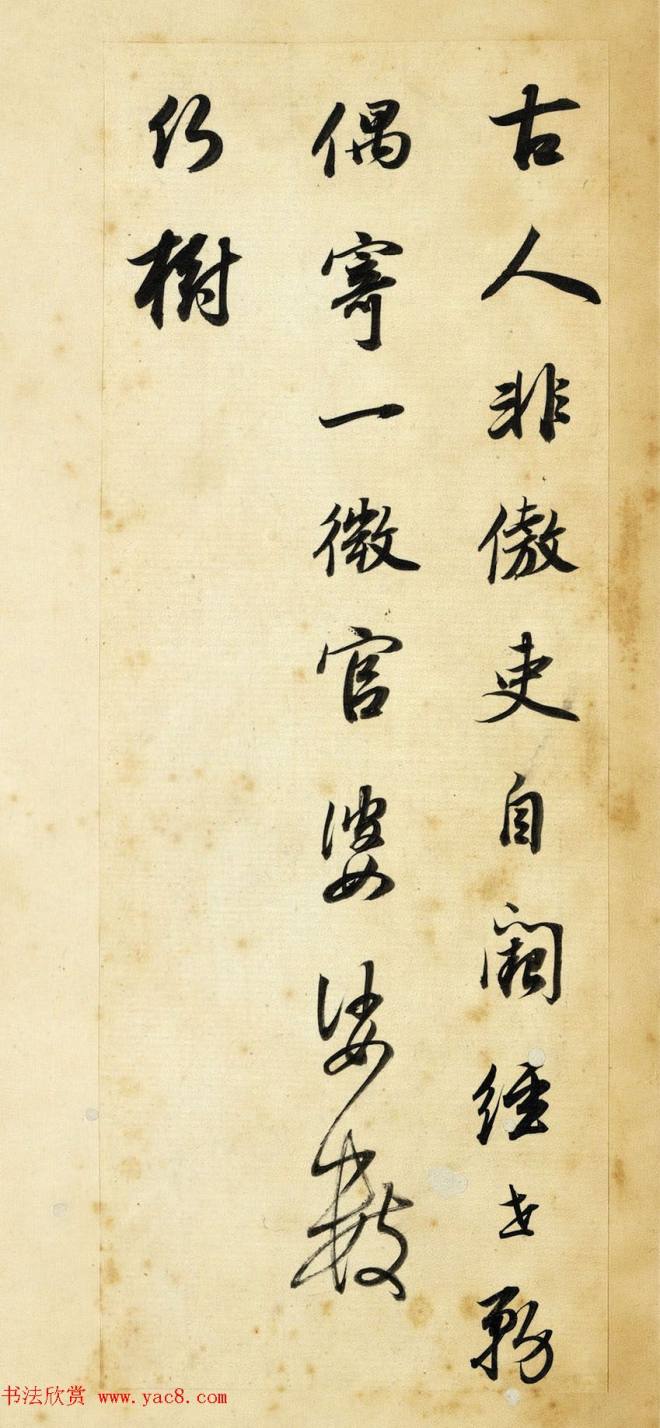 古人非傲吏自闕經世務
偶寄一微官婆娑數
樹
书法欣赏 www.yac8.com